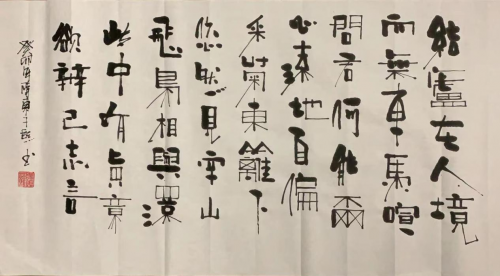 結廬在人境
而無車馬喧
問君何能爾
心遠地自偏
采菊東籬下
悠然見南山
飛鳥相與還
此中有真意
欲辨已忘言
癸卯年